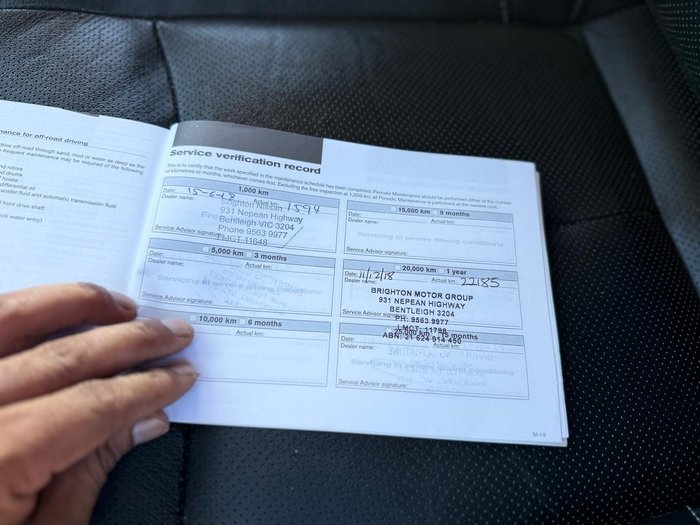 nance for off-road driving
drive off-road through sand, mud or water as deep as the
frequent maintenance may be required of the following
nd rotors
nd drums
boxes
differential oil
transfer fluid and automatic transmission fluid
feed drive shaft
ck water entry)
Service verification record
This is to certify that the work specified in the maintenance schedule has been completed. Periodic Maintenance should be performed either at the number
of kilometres or months, whichever comes first. Excluding the free inspection at 1,000 km, all Periodic Maintenance is performed at the owners cost.
1,000 km
Date: 15-6-18 Actual km: 1594
Dealer name:
Brighton Nissan
931 Nepean Highway
Bentleigh VIC 3204
Phone 9563 9977
Service Advisor signature:
LMCT 11648
5,000 km 3 months
Date: Actual km:
Dealer name:
Servicing in severe driving conditions
Service Advisor signature:
10,000 km 6 months
Actual km:
15,000 km 9 months
Date: Actual km:
Dealer name:
Servicing in severe driving conditions
Service Advisor signature:
20,000 km 1 year
Date: 11/12/18 Actual km: 22185
Dealer name:
BRIGHTON MOTOR GROUP
931 NEPEAN HIGHWAY
BENTLEIGH 3204
Service Advisor signature:
PH: 9563 9977
LMCT: 11798
25,000 km 15 months
ABN: 21 624 914 450
Date: Actual km:
Dealer name:
Servicing in severe driving conditions
Service Advisor signature:
M-19